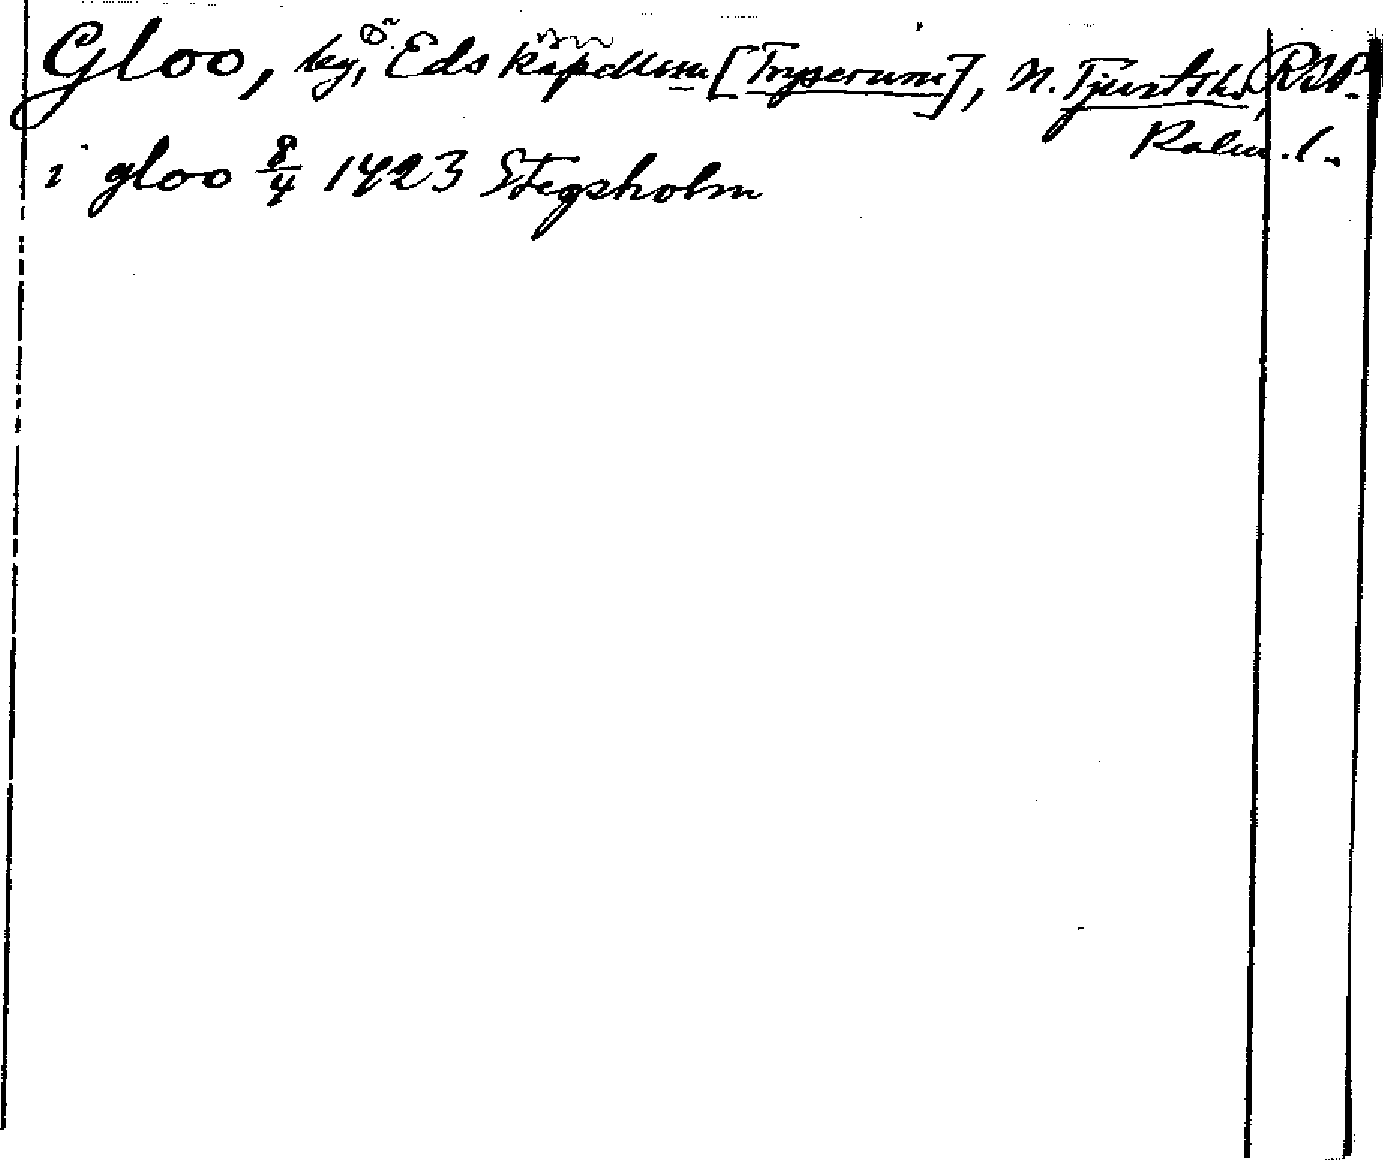 Gloo, by, Ö. Eds kapellm [Tryserum], N. Tjusts hd, RAP.
Kalm. l.
i gloo 8/4 1423 Stegsholm